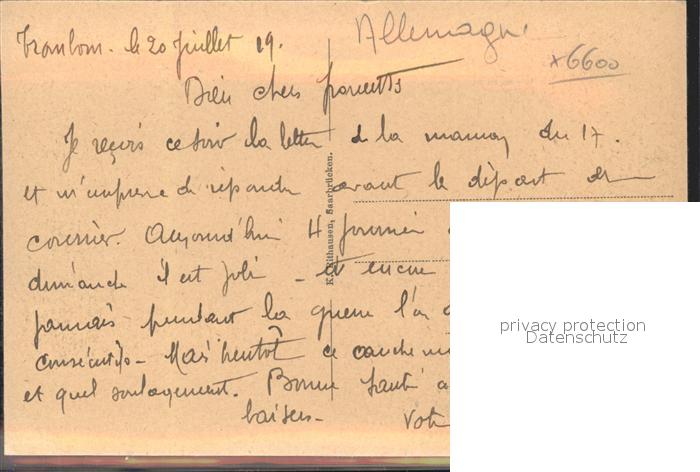 le 20 juillet 19.
Allemagne
x6600
Bien chers parents
Je reçois ce soir la lettre de la maman du 17.
et m'empresse de répondre avant le départ du
courrier. Aujourd'hui 4 journée
dimanche il est joli - et encore
jamais pendant la guerre l'on
consécutifs - Mais bientôt ce cauchemar
et quel soulagement. Bonne santé a
baisers - Votr
Saarbrücken.
privacy protection
Datenschutz